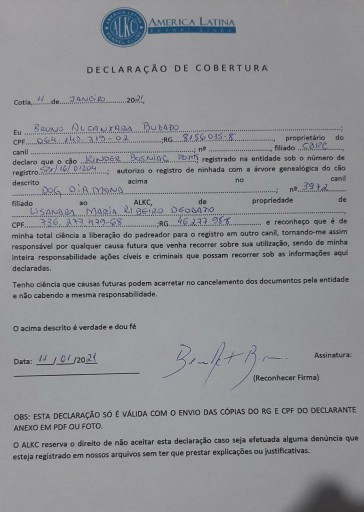 AMERICA LATINA
KENNEL CLUB
ALKC
DECLARAÇÃO DE COBERTURA
Cotia, 11 de JANEIRO 2021,
Eu BRUNO ALCANTARA BUZATO
CPF 064.140.319-02 ;RG 8156035-8, proprietário do
canil ; nº , filiado CBKC
declaro que o cão KINDER BOSNIAC POM registrado na entidade sob o número de
registro ; autorizo o registro de ninhada com a árvore genealógica do cão
descrito acima no canil
DOG DIAMOND ; nº 3972
filiado ao ALKC, de propriedade de
LISANDRA MARIA RIBEIRO DEODATO
CPF ;RG e reconheço que é de
minha total ciência a liberação do padreador para o registro em outro canil, tornando-me assim
responsável por qualquer causa futura que venha recorrer sobre sua utilização, sendo de minha
inteira responsabilidade ações cíveis e criminais que possam recorrer sob as informações aqui
declaradas.
Tenho ciência que causas futuras podem acarretar no cancelamento dos documentos pela entidade
e não cabendo a mesma responsabilidade.
O acima descrito é verdade e dou fé
Data: 11/01/2021 Assinatura:
(Reconhecer Firma)
OBS: ESTA DECLARAÇÃO SÓ É VÁLIDA COM O ENVIO DAS CÓPIAS DO RG E CPF DO DECLARANTE
ANEXO EM PDF OU FOTO.
O ALKC reserva o direito de não aceitar esta declaração caso seja efetuada alguma denúncia que
esteja registrado em nossos arquivos sem ter que prestar explicações ou justificativas.